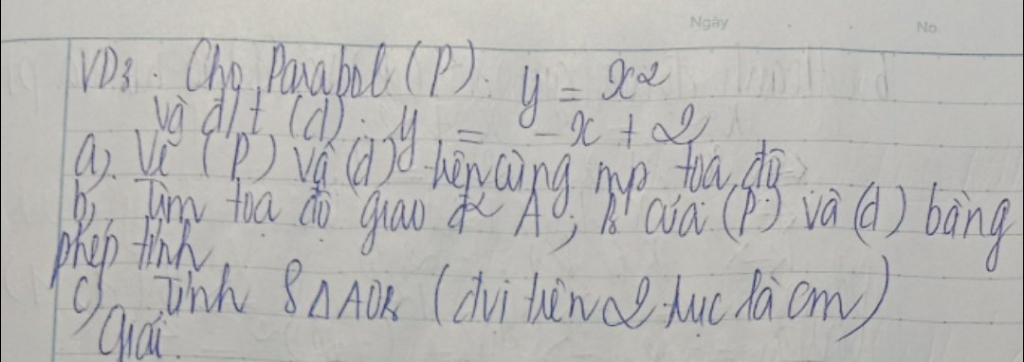 Ngày No.
VD3. Cho Parabol (P): y = x²
và đ/t (d): y = -x + 2
a). Vẽ (P) và (d) trên cùng mp toạ độ
b). Tìm toạ độ giao đ² A; B của (P) và (d) bằng
phép tính
c) Tính SΔAOB (đvi trên 2 trục là cm)
Giải.